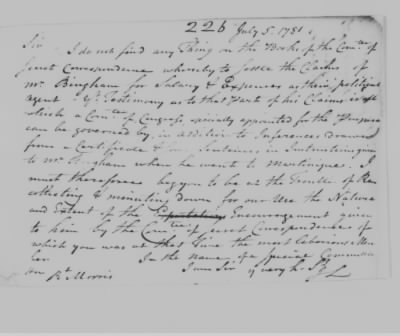 226
July 5. 1781
Sir
I do not find any Thing on the Books of the Comtee of
secret Correspondence whereby to settle the Claims of
Mr Bingham for Salary & Expences as their political
agent. Yr Testimony as to that Part of his Claims is all
which a Comtee of Congress specially appointed for the Purpose
can be governed by, in addition to Inferences drawn
from a Certificate & Sentences in Instructions given
to Mr Bingham when he went to Martinique. I
must therefore beg you to be at the Trouble of Re
collecting & minuting down for our Use the Nature
and Extent of the Encouragement given
to him by the Comtee of secret Correspondence of
which you was at that Time the most laborious Mem
ber
In the name of a special Committee
I am Sir yr very h. S
J L
Hon Rt Morris